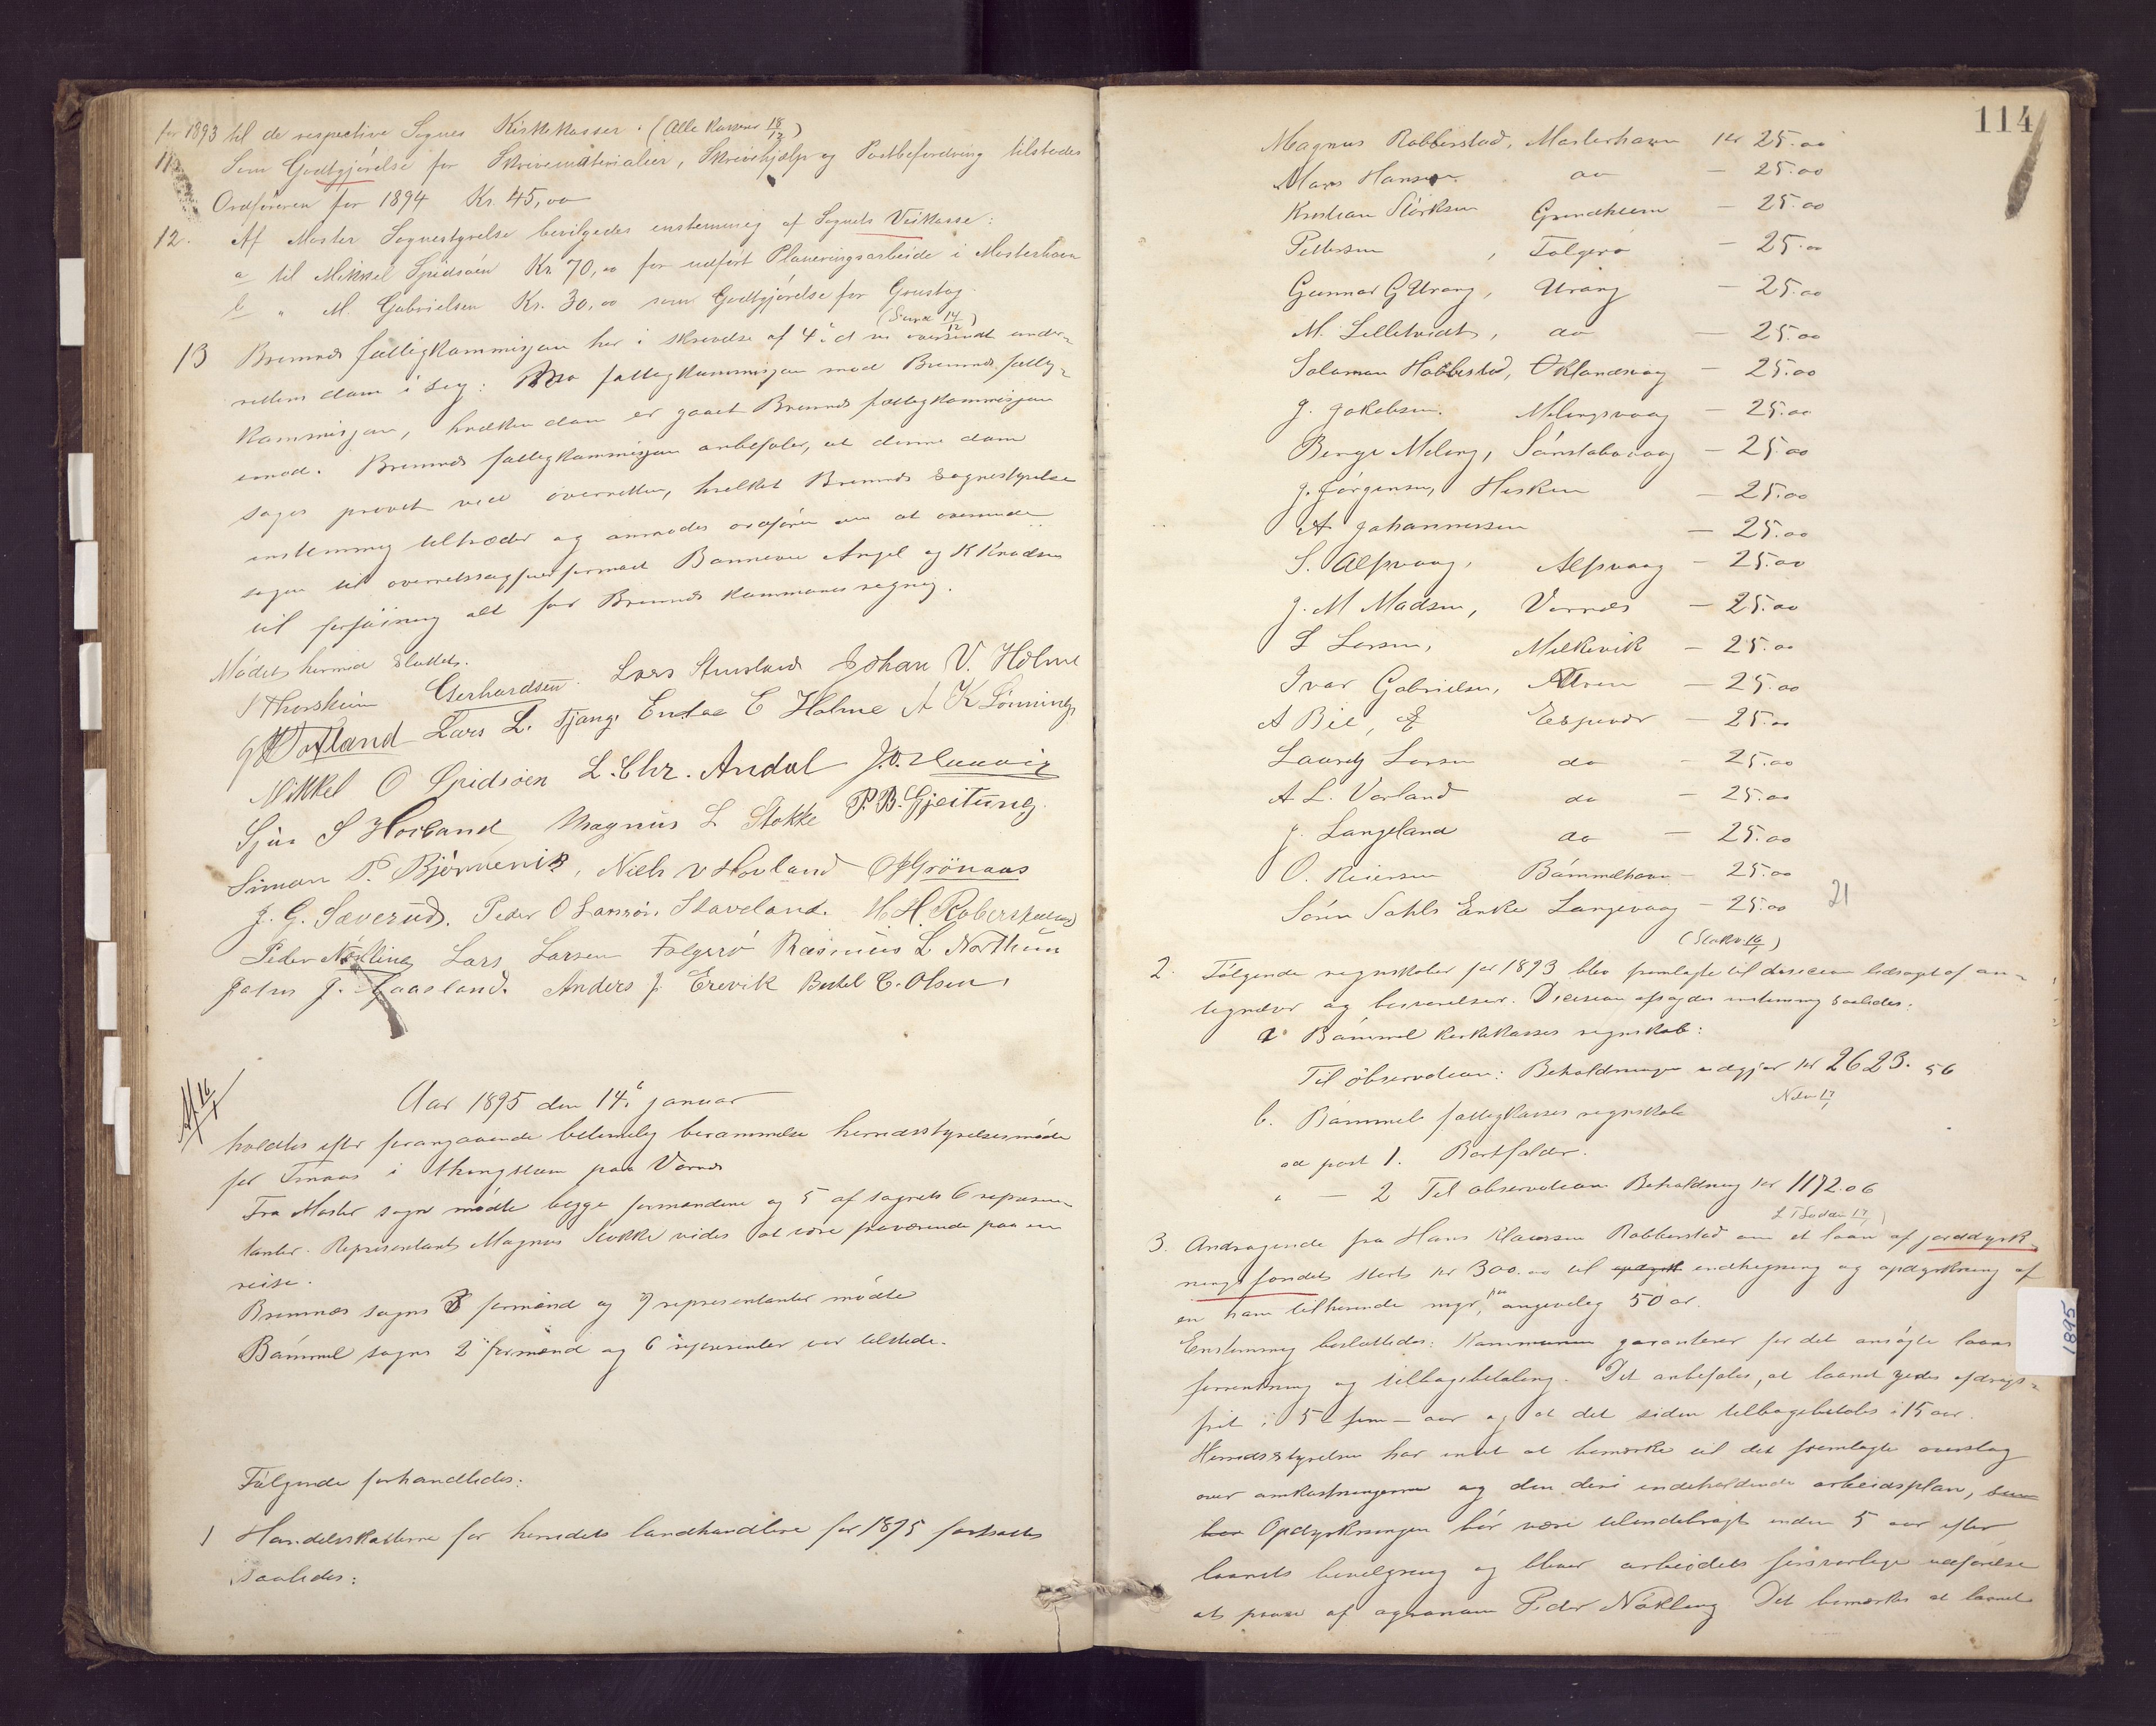 for 1893 til de respective Sognes Kirkekasser. (Alle Kasser 18/12)
11. Som Godtgjørelse for Skrivematerialier, Skrivehjælp og Postbefordring tilstodes
Ordføreren for 1894 Kr. 45,00
12. Af Moster Sognestyrelse bevilgedes enstemmig af Sognets Veikasse:
a til Mikkel Spidsøen Kr. 70,00 for udført Planeringsarbeide i Mosterhavn
b " M. Gabrielsen Kr. 30,00 som Godtgjørelse for Grustag.
13 Bremnes fattigkommisjon har i skrivelse af 4de d m oversendt under-
rettens dom i sag: fattigkommisjon mod Bremnes fattig-
kommisjon, hvilken dom er gaaet Bremnes fattigkommisjon
imod. Bremnes fattigkommisjon anbefaler, at denne dom
søges prøvet ved overretten, hvilket Bremnes sognestyrelse
enstemmig tiltræder og anmodes ordføren om at oversende
sagen til overretssagfører formænd Bonnevie Angel og K Knudsen
til forføining alt for Bremnes kommunes regning.
Mødet hermed sluttet.
S Thorsheim Gerhardsen. Lars Stursland Johan V. Holme
Vorland Lars L. Tjang. Endre E Holme A K Lønning
Mikkel O Spidsøen L. Chr. Andal
Sjur S Hovland Magnus L Stokke P. B. Gjeitung.
Simon P. Bjørnevik, Niels V Hovland Grönaas
J. G. Sæverud. Peder O Larssøn Staveland. H. H. Roberstad
Peder Nøkling Lars Larsen Folgerø Rasmus L Northun
J. Aasland. Anders J. Erevik Bertel C. Olsen,
Aar 1895 den 14de januar
holdtes efter forangaaende betimelig berammelse herredsstyrelsesmøde
for Finaas i thingstuen paa Vornes
Fra Moster sogn mødte begge formændene og 5 af sognets 6 represen-
tanter. Representant Magnus Stokke vides at være fraværende paa en
reise.
Bremnæs sogns 3 formænd og 9 representanter mødte
Bømmel sogns 2 formænd og 6 representer var tilstede.
Følgende forhandledes:
1 Handelsskatterne for herredets landhandlere for 1895 fastsattes
saaledes:
114
Magnus Robberstad, Mosterhavn kr 25.00
Mons Hansen do - 25.00
Kristian Størksen Grindheim - 25.00
Pettersen, Folgerø - 25.00
Gunnar G Urang, Urang - 25.00
M. Lilletvedt, do - 25.00
Salamon Habbestad, Øklandsvag - 25.00
J. Jakobsen. Melingsvaag - 25.00
Berge Meling, Sønstabøvaag - 25.00
J. Jørgensen, Hisken - 25.00
A Johannessen - 25.00
S. Alfsvaag, Alfsvaag - 25.00
J. M Madsen, Vornes - 25.00
L Larsen, Melkevik - 25.00
Ivar Gabrielsen, - 25.00
A Bie, Espevær - 25.00
Lauritz Larsen do - 25.00
A L. Vorland do - 25.00
J. Langeland do - 25.00
O. Reiersen Bømmelhavn - 25.00
Søren Dahls Enke Langevaag - 25.00 21
2. Følgende regnskaber for 1893 blev fremlagte til desicion ledsaget af an-
tegnelser og besvarelser. Dicision afsagdes enstemmig saaledes:
a Bømmel kirkekasses regnskab:
Til observation: Beholdningen udgjør kr 2623.56
b. Bømmels fattigkasses regnskab
ad post 1. Bortfalder.
" - 2 Til observation Beholdning kr 1192.06
3. Andragende fra Hans Klaussen Robberstad om et laan af jorddyrk-
ningsfondet stort kr 300.00 til indhegning og opdyrkning af
en ham tilhørende myr, angivelig 50 ar.
Enstemmig besluttedes: Kommunen garanterer for det ansøgte laans
forrentning og tilbagebetaling. Det anbefales, at laanet gives afdrags-
frit i 5 - fem - aar og at det siden tilbagebetales i 15 aar.
Herredsstyrelsen har intet at bemærke til det fremlagte overslag
over omkostningerne og den deri indeholdende arbeidsplan,
Opdyrkningen bør være tilendebragt inden 5 aar efter
laanets bevilgning og bliver arbeidets forsvarlige udførelse
at prøve af agronom Peder Nøkling Det bemærkes at laanet
1895